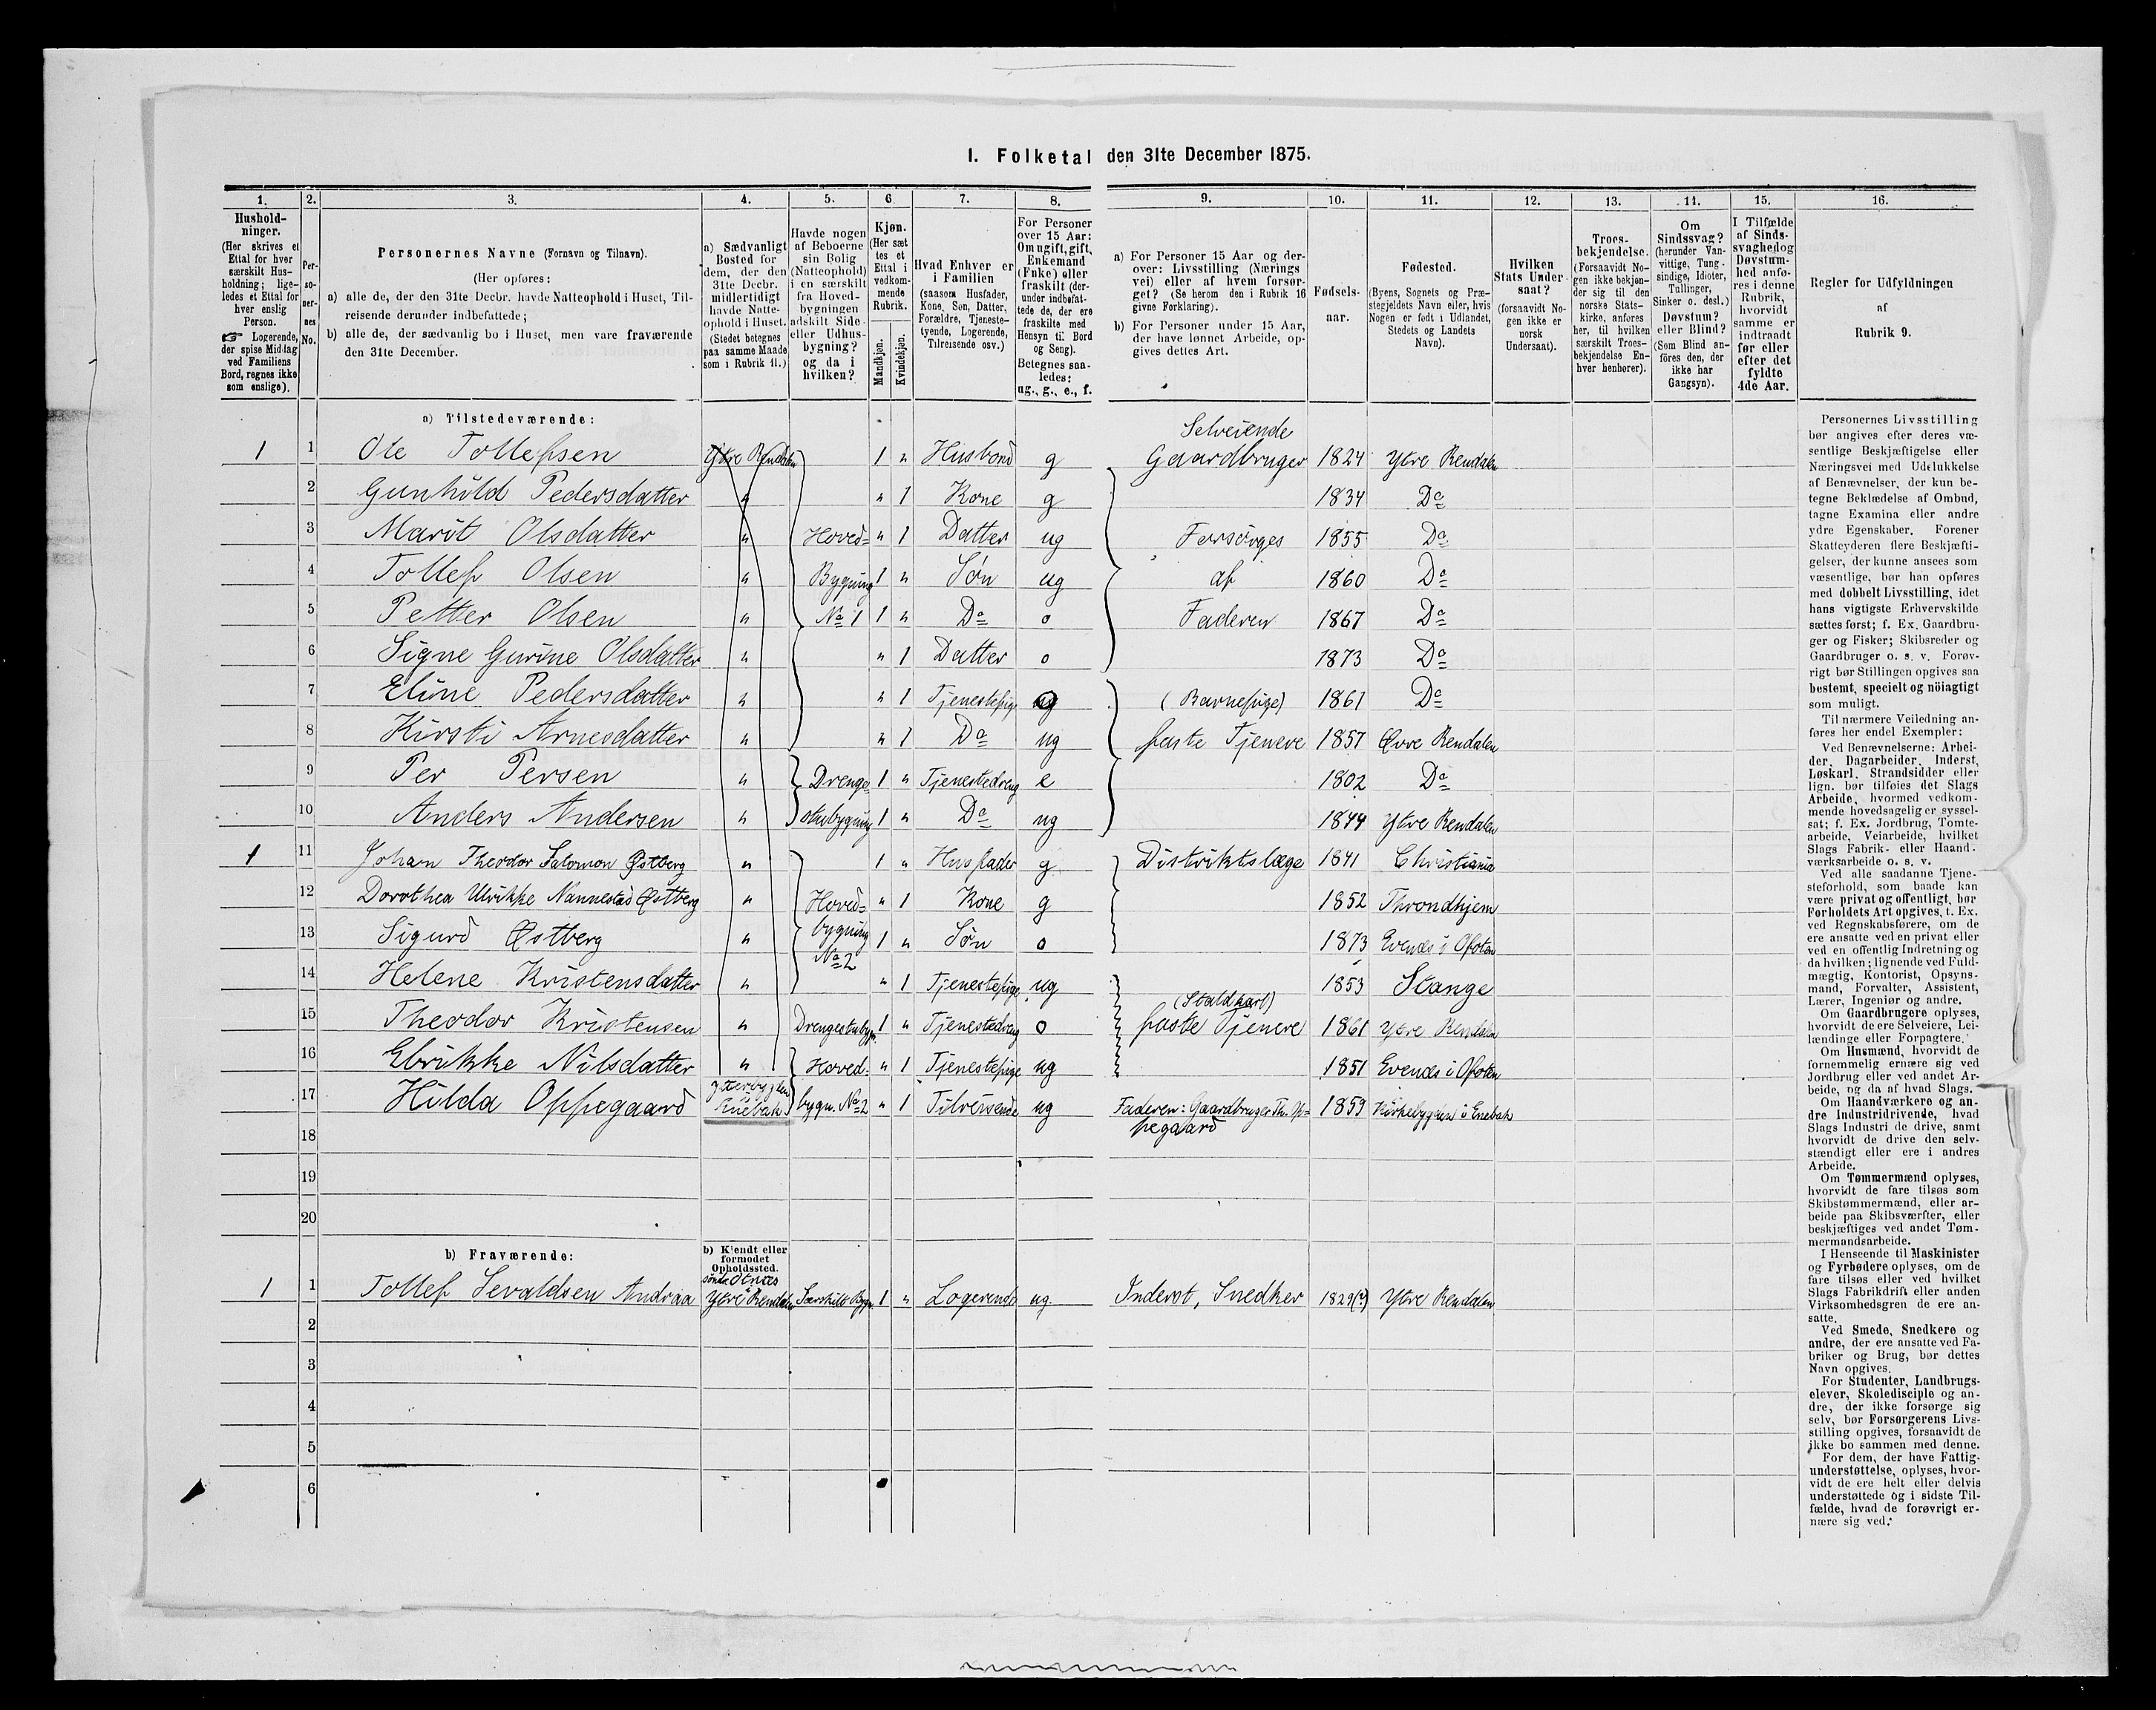 I. Folketal den 31te December 1875.
1. 2. 3. 4. 5. 6 7. 8. 9. 10. 11. 12. 13. 14. 15. 16.
Husholdninger.
(Her skrives et Ettal for hver særskilt Husholdning; ligeledes et Ettal for hver enslig Person.
☞ Logerende, der spise Middag ved Familiens Bord, regnes ikke som enslige).
Personernes No.
Personernes Navne (Fornavn og Tilnavn).
(Her opføres:
a) alle de, der den 31te Decbr. havde Natteophold i Huset, Tilreisende derunder indbefattede;
b) alle de, der sædvanlig bo i Huset, men vare fraværende den 31te December.
a) Sædvanligt Bosted for dem, der den 31te Decbr. midlertidigt havde Natteophold i Huset. (Stedet betegnes paa samme Maade som i Rubrik 11.)
Havde nogen af Beboerne sin Bolig (Natteophold) i en særskilt fra Hovedbygningen adskilt Side- eller Udhusbygning? og da i hvilken?
Kjøn. (Her sættes et Ettal i vedkommende Rubrik.
Mandkjøn.
Kvindekjøn.
Hvad Enhver er i Familien (saasom Husfader, Kone, Søn, Datter, Forældre, Tjenestetyende, Logerende, Tilreisende osv.)
For Personer over 15 Aar: Om ugift, gift, Enkemand (Enke) eller fraskilt (derunder indbefattede de, der ere fraskilte med Hensyn til Bord og Seng). Betegnes saaledes: ug., g., e., f.
a) For Personer 15 Aar og derover: Livsstilling (Næringsvei) eller af hvem forsørget? (Se herom den i Rubrik 16 givne Forklaring).
b) For Personer under 15 Aar, der have lønnet Arbeide, opgives dettes Art.
Fødselsaar.
Fødested.
(Byens, Sognets og Præstegjeldets Navn eller, hvis Nogen er født i Udlandet, Stedets og Landets Navn).
Hvilken Stats Undersaat? (forsaavidt Nogen ikke er norsk Undersaat).
Troesbekjendelse. (Forsaavidt Nogen ikke bekjender sig til den norske Statskirke, anføres her, til hvilken særskilt Troesbekjendelse Enhver henhører).
Om Sindssvag? (herunder Vanvittige, Tungsindige, Idioter, Tullinger, Sinker o. desl.) Døvstum? eller Blind? (Som Blind anføres den, der ikke har Gangsyn).
I Tilfælde af Sindssvaghed og Døvstumhed anføres i denne Rubrik, hvorvidt samme er indtraadt før eller efter det fyldte 4de Aar.
Regler for Udfyldningen af Rubrik 9.
a) Tilstedeværende:
1 1 Ole Tollefsen Ytre Rendalen 1 " Husbond g Selveiende Gaardbruger 1824 Ytre Rendalen
2 Gunhild Pedersdatter " " 1 Kone g 1834 Do
3 Marit Olsdatter " Hoved= " 1 Datter ug Forsørges 1855 Do
4 Tollef Olsen " Bygning 1 " Søn ug af 1860 Do
5 Petter Olsen " No 1 1 " Do o Faderen 1867 Do
6 Signe Gurine Olsdatter " " 1 Datter o 1873 Do
7 Eline Pedersdatter " " 1 Tjenestepige ug (Barnepige) 1861 Do
8 Kirsti Arnesdatter " " 1 Do ug faste Tjenere 1857 Øvre Rendalen
9 Per Persen " Drenge= 1 " Tjenestedreng e 1802 Do
10 Anders Andersen " stubygning 1 " Do ug 1844 Ytre Rendalen
1 11 Johan Theodor Salomon Østberg " 1 " Husfader g Distriktslæge 1841 Christiania
12 Dorothea Ulrikke Nannestad Østberg " Hoved= " 1 Kone g 1852 Throndhjem
13 Sigurd Østberg " bygning No 2 1 " Søn o 1873 Evenæs i Ofoten
14 Helene Kristensdatter " " 1 Tjenestepige ug 1853 Stange
15 Theodor Kristensen " Drengestubygn. 1 " Tjenestedreng o (Staldkarl) faste Tjenere 1861 Ytre Rendalen
16 Elrikke Nilsdatter " Hoved- " 1 Tjenestepige ug 1851 Evenæs i Ofoten
17 Hilda Oppegaard Enebak bygn. No 2 " 1 Tilreisende ug Faderen: Gaardbruger Th. Oppegaard 1859 Kirkebygden i Enebak
18
19
20
b) Fraværende:
b) Kjendt eller formodet Opholdssted.
1 1 Tollef Sevaldsen Andraa søndre Otnæs Ytre Rendalen Særskilt Bygn. 1 " Logerende ug. Inderst, Snedker 1829(?) Ytre Rendalen
2
3
4
5
6
Personernes Livsstilling bør angives efter deres væsentlige Beskjæftigelse eller Næringsvei med Udelukkelse af Benævnelser, der kun betegne Beklædelse af Ombud, tagne Examina eller andre ydre Egenskaber. Forener Skatteyderen flere Beskjæftigelser, der kunne ansees som væsentlige, bør han opføres med dobbelt Livsstilling, idet hans vigtigste Erhvervskilde sættes først; f. Ex. Gaardbruger og Fisker; Skibsreder og Gaardbruger o. s. v. Forøvrigt bør Stillingen opgives saa bestemt, specielt og nöiagtigt som muligt.
Til nærmere Veiledning anføres her endel Exempler:
Ved Benævnelserne: Arbeider, Dagarbeider, Inderst, Løskarl, Strandsidder eller lign. bør tilføies det Slags Arbeide, hvormed vedkommende hovedsagelig er sysselsat; f. Ex. Jordbrug, Tomtearbeide, Veiarbeide, hvilket Slags Fabrik- eller Haandværksarbeide o. s. v.
Ved alle saadanne Tjenesteforhold, som baade kan være privat og offentligt, bør Forholdets Art opgives, t. Ex. ved Regnskabsførere, om de ere ansatte ved en privat eller ved en offentlig Indretning og da hvilken; lignende ved Fuldmægtig, Kontorist, Opsynsmand, Forvalter, Assistent, Lærer, Ingeniør og andre.
Om Gaardbrugere oplyses, hvorvidt de ere Selveiere, Leilændinge eller Forpagtere.
Om Husmænd, hvorvidt de fornemmelig ernære sig ved Jordbrug eller ved andet Arbeide, og da af hvad Slags.
Om Haandværkere og andre Industridrivende, hvad Slags Industri de drive, samt hvorvidt de drive den selvstændigt eller ere i andres Arbeide.
Om Tømmermænd oplyses, hvorvidt de fare tilsøs som Skibstømmermænd, eller arbeide paa Skibsværfter, eller beskjæftiges ved andet Tømmermandsarbeide.
I Henseende til Maskinister og Fyrbødere oplyses, om de fare tilsøs eller ved hvilket Slags Fabrikdrift eller anden Virksomhedsgren de ere ansatte.
Ved Smede, Snedkere og andre, der ere ansatte ved Fabriker og Brug, bør dettes Navn opgives.
For Studenter, Landbrugselever, Skoledisciple og andre, der ikke forsørge sig selv, bør Forsørgerens Livsstilling opgives, forsaavidt de ikke bo sammen med denne.
For dem, der have Fattigunderstøttelse, oplyses, hvorvidt de ere helt eller delvis understøttede og i sidste Tilfælde, hvad de forøvrigt ernære sig ved.